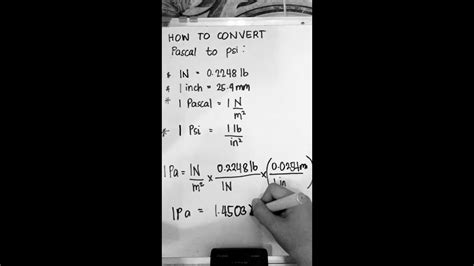 HOW TO CONVERT
Pascal to psi:
* 1N = 0.2248 lb
* 1 inch = 25.4mm
* 1 Pascal = 1 N/m²
* 1 Psi = 1 lb/in²
1 Pa = 1N/m² × 0.2248 lb/1N × (0.0254m/1 in)
1 Pa = 1.4503